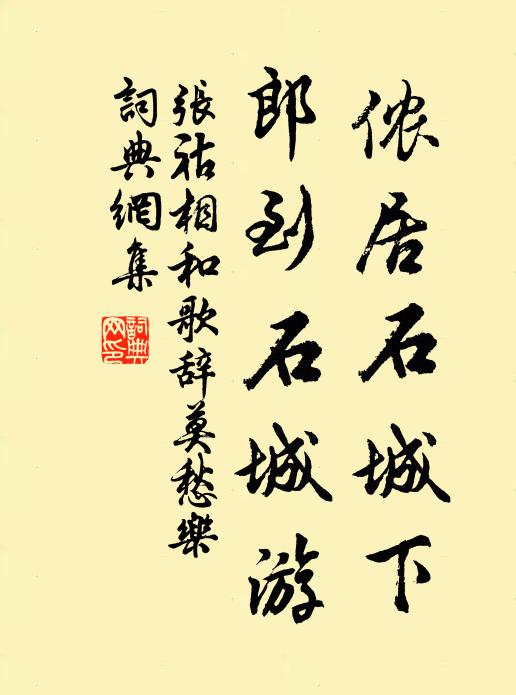 侬居石城下
郎到石城游
張祜相和歌辞莫愁樂
詞典網集
詞典网印